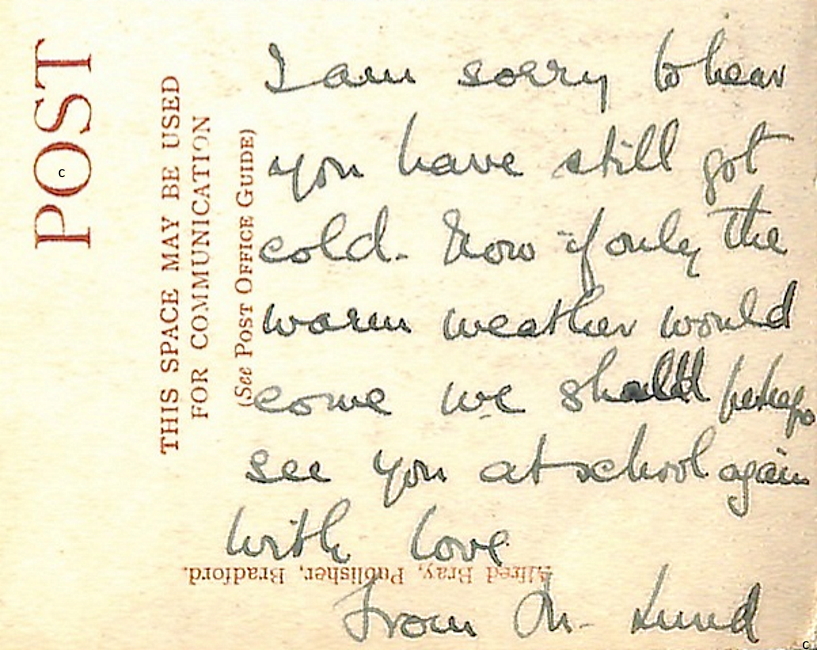 POST
THIS SPACE MAY BE USED
FOR COMMUNICATION
(See POST OFFICE GUIDE)
I am sorry to hear
you have still got
cold. Now if only the
warm weather would
come we should perhaps
see you at school again
With love
Alfred Bray, Publisher, Bradford.
From M. Lund